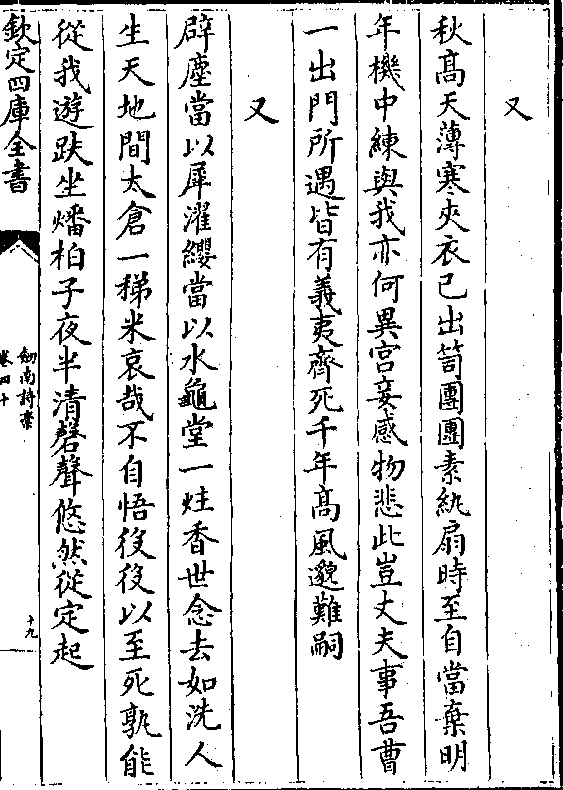 又
秋髙天薄寒夾衣已出笥團團素紈扇時至自當棄明
年機中練與我亦何異宫妾感物悲此豈丈夫事吾曹
一出門所遇皆有義夷齊死千年髙風邈難嗣
又
辟塵當以犀濯纓當以水龜堂一炷香世念去如洗人
生天地間太倉一稊米哀哉不自悟役役以至死孰能
從我遊趺坐燔柏子夜半清磬聲悠然從定起
欽定四庫全書
劒南詩稾
卷四十
十九